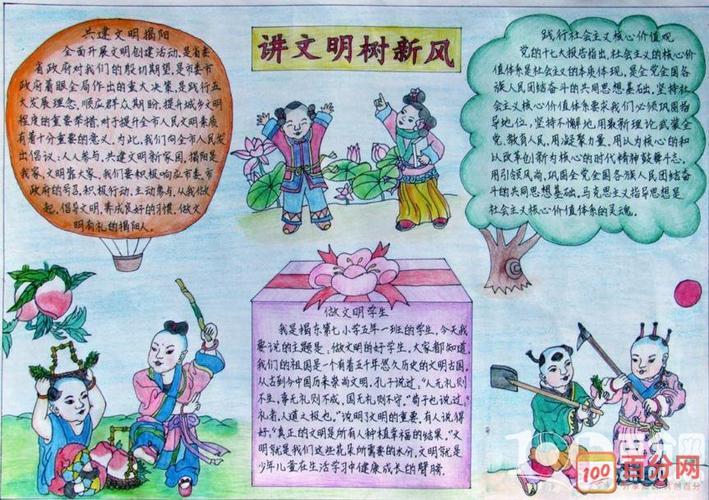 讲文明树新风
共建文明揭阳
全面开展文明创建活动,是省委、
省政府对我们的殷切期望,是市委市
政府着眼全局作出的重大决策,是践行五
大发展理念,顺应群众期盼,提升城乡文明
程度的重要举措,对于提升全市人民文明素质
有着十分重要的意义。为此,我们向全市人民发
出倡议:人人参与,共建文明新家园,揭阳是我
家,文明靠大家,我们要积极响应市委、市
政府的号召,积极行动,主动参与,从我做
起,倡导文明,养成良好的习惯,做文
明有礼的揭阳人。
践行社会主义核心价值观
党的十七大报告指出,社会主义的核心价
值体系是社会主义的本质体现,是全党全国各
族人民团结奋斗的共同思想基础。坚持社
会主义核心价值体系要求我们必须巩固指
导地位,坚持不懈地,用教新理论武装全
党、教育人民,用凝聚力量,用以为核心的和
以改革创新为核心的时代精神鼓舞斗志,
用引领风尚,巩固全党全国各族人民团结奋
斗的共同思想基础。马克思主义指导思想是
社会主义核心价值体系的灵魂。
做文明学生
我是揭东第七小学五年一班的学生,今天我
要说的主题是:做文明的好学生。大家都知道,
我们的祖国是一个有着五千年悠久历史的文明古国。
从古到今中国历来崇尚文明,孔子说过,“人无礼则
不生,事无礼则不成,国无礼则不守。”荀子也说过,“
礼者,人道之极也。”说明了文明的重要,有人说得
好,“真正的文明是所有人种植幸福的结果。”文
明就是我们这些花朵所需要的水分,文明就是
少年儿童在生活学习中健康成长的臂膀。
100
百分网